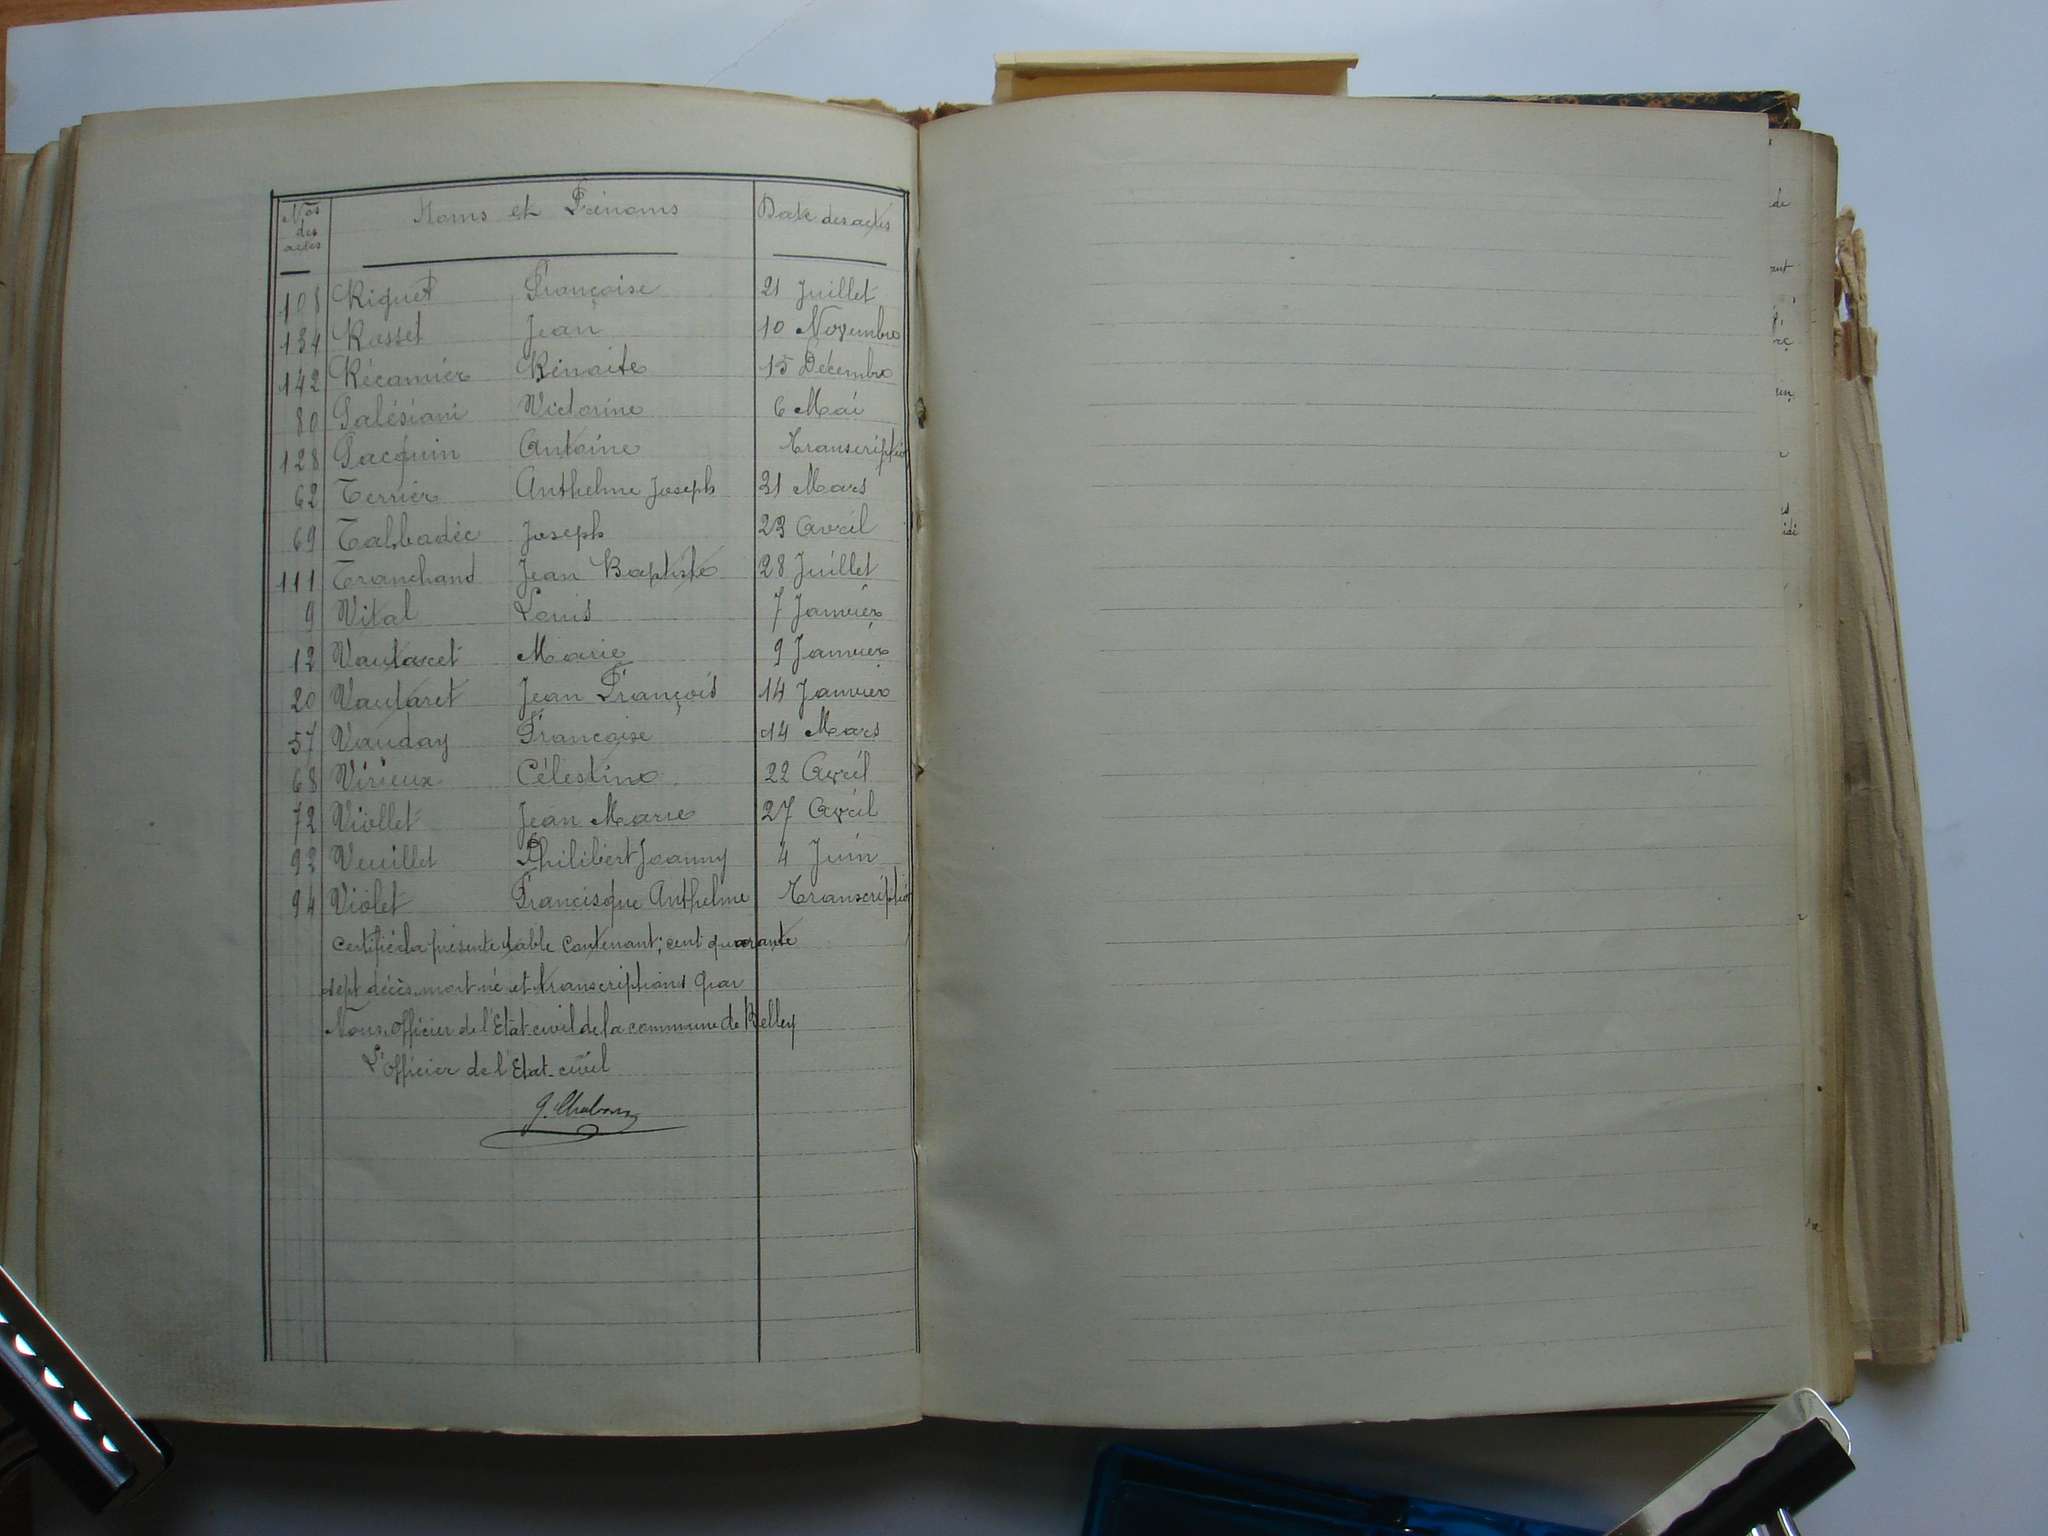 Nos des actes Noms et Prénoms Date des actes
108 Riquet Françoise 21 Juillet
134 Rosset Jean 10 Novembre
142 Récamier Bénoite 15 Décembre
80 Salésiani Victorine 6 Mai
128 Jacquin Antoine Transcription
62 Terrier Anthelme Joseph 31 Mars
69 Tabbadie Joseph 23 Avril
111 Tranchand Jean Baptiste 28 Juillet
9 Vital Louis 7 Janvier
12 Vautaret Marie 9 Janvier
20 Vautaret Jean François 14 Janvier
57 Vauday Françoise 14 Mars
68 Virieux Célestine 22 Avril
72 Viollet Jean Marie 27 Avril
92 Veuillet Philibert Joanny 4 Juin
94 Violet Francisque Anthelme Transcription
Certifié la présente table contenant; cent quarante
sept décès, mort né et transcriptions par
Nous, officier de l'Etat-civil de la commune de Belley
L'officier de l'Etat-civil